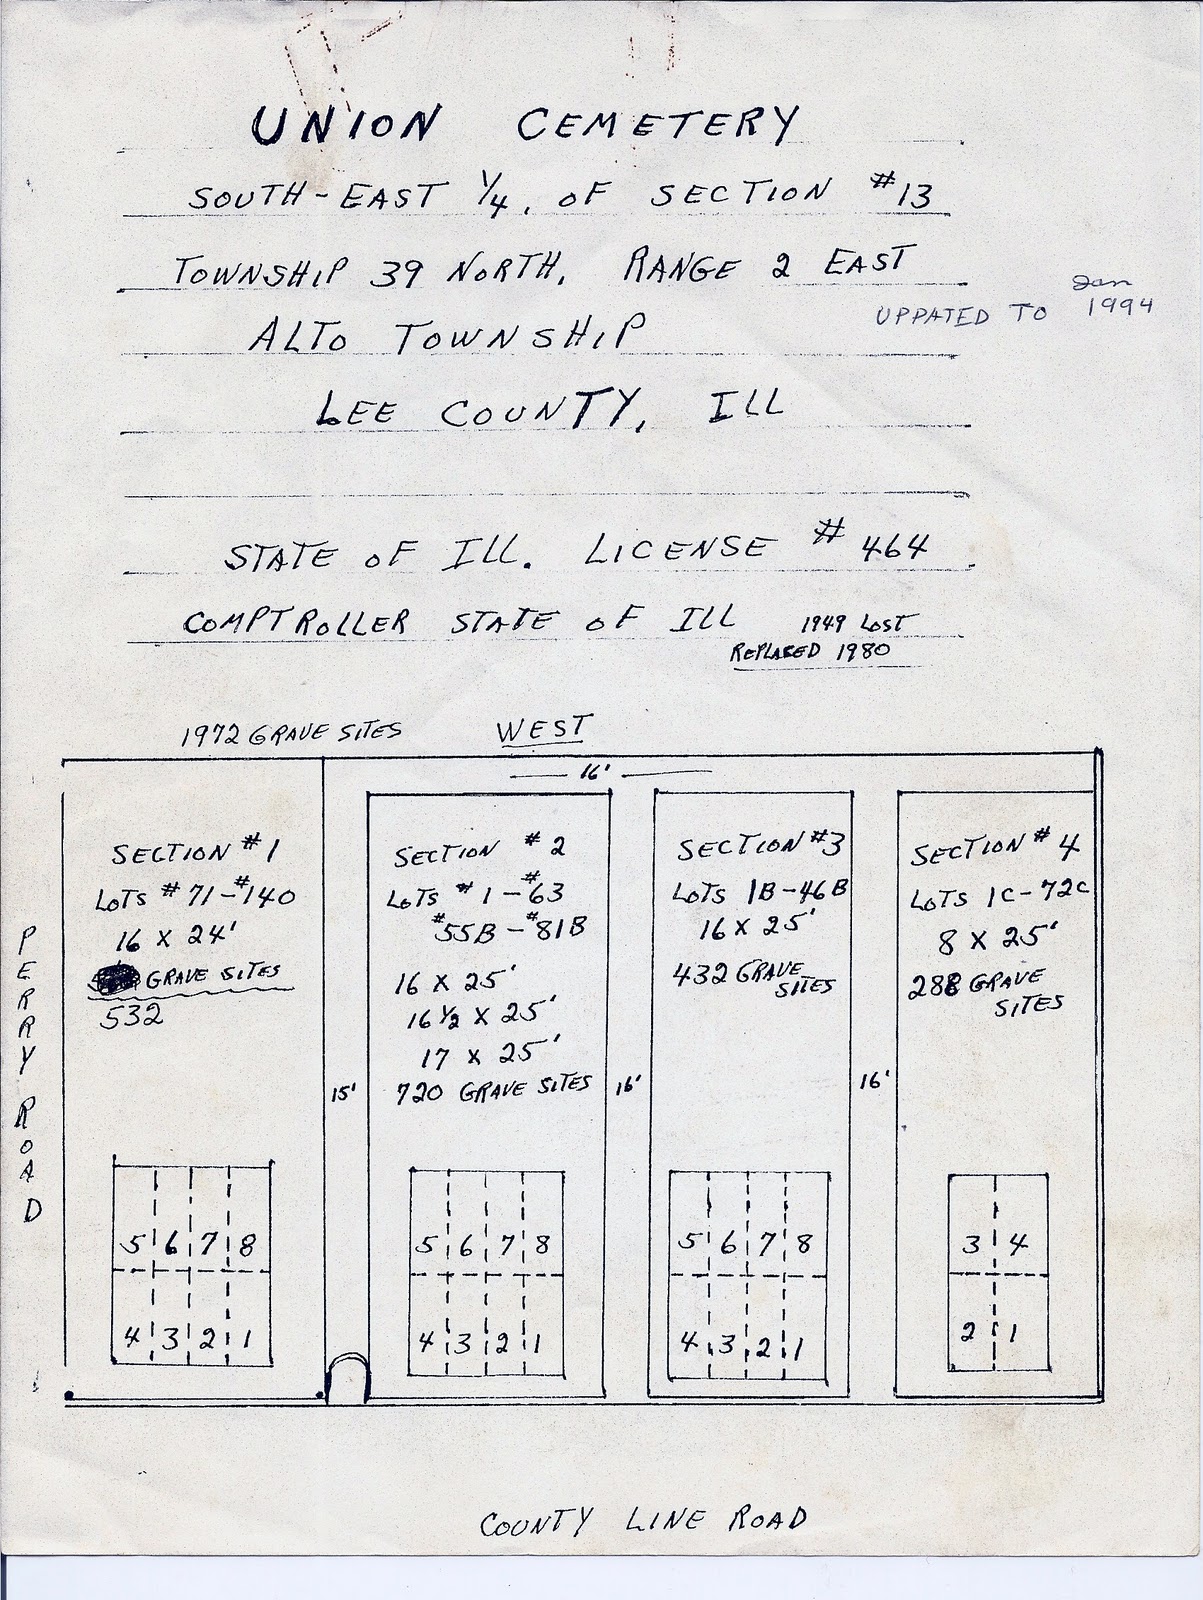 UNION CEMETERY
SOUTH-EAST 1/4, OF SECTION #13
TOWNSHIP 39 NORTH, RANGE 2 EAST
UPPATED TO Jan 1994
ALTO TOWNSHIP
LEE COUNTY, ILL
STATE OF ILL. LICENSE # 464
COMPTROLLER STATE OF ILL 1949 LOST
REPLACED 1980
1972 GRAVE SITES WEST
16'
PERRY ROAD
SECTION #1
LOTS #71-#140
16 X 24'
GRAVE SITES
532
5 6 7 8
4 3 2 1
15'
SECTION #2
LOTS #1-#63
#55B-#81B
16 X 25'
16 1/2 X 25'
17 X 25'
720 GRAVE SITES
5 6 7 8
4 3 2 1
16'
SECTION #3
LOTS 1B-46B
16 X 25'
432 GRAVE
SITES
5 6 7 8
4 3 2 1
16'
SECTION #4
LOTS 1C-72C
8 X 25'
288 GRAVE
SITES
3 4
2 1
COUNTY LINE ROAD